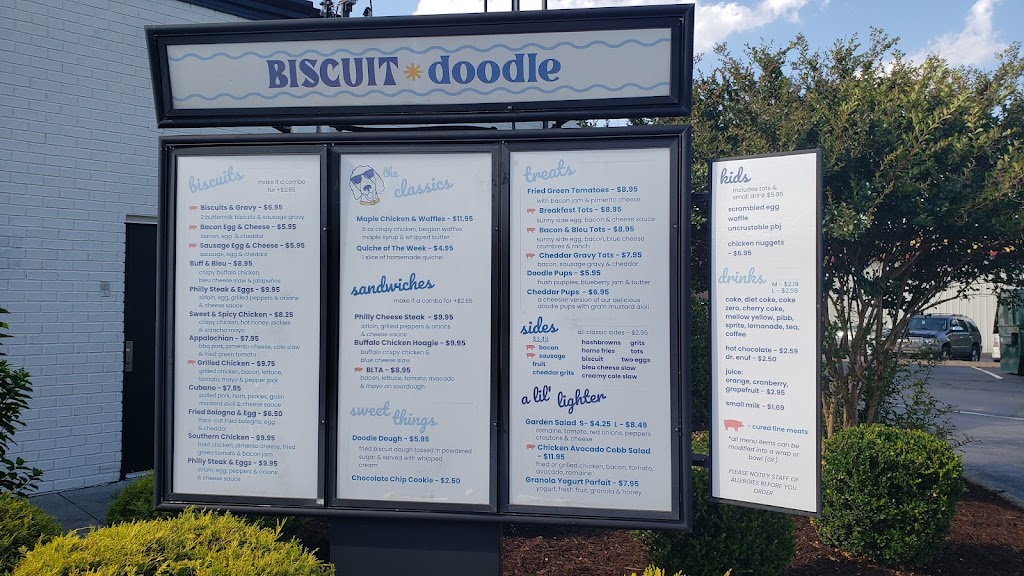 BISCUIT doodle
biscuits
make it a combo
for +$2.95
Biscuits & Gravy - $6.95
2 buttermilk biscuits & sausage gravy
Bacon Egg & Cheese - $5.95
bacon, egg & cheddar
Sausage Egg & Cheese - $5.95
sausage, egg & cheddar
Buff & Bleu - $8.95
crispy buffalo chicken,
bleu cheese slaw & jalapeños
Philly Steak & Eggs - $9.95
sirloin, egg, grilled peppers & onions
& cheese sauce
Sweet & Spicy Chicken - $8.25
crispy chicken, hot honey, pickles
& sriracha mayo
Appalachian - $7.95
bbq pork, pimento cheese, cole slaw
& fried green tomato
Grilled Chicken - $9.75
grilled chicken, bacon, lettuce,
tomato, mayo & pepper jack
Cubano - $7.95
pulled pork, ham, pickles, grain
mustard aioli & cheese sauce
Fried Bologna & Egg - $6.50
thick-cut fried bologna, egg
& cheddar
Southern Chicken - $9.95
fried chicken, pimento cheese, fried
green tomato & bacon jam
Philly Steak & Eggs - $9.95
sirloin, egg, peppers & onions
& cheese sauce
the
classics
Maple Chicken & Waffles - $11.95
fried or crispy chicken, belgian waffles,
maple syrup & whipped butter
Quiche of The Week - $4.95
1 slice of homemade quiche!
sandwiches
make it a combo for +$2.95
Philly Cheese Steak - $9.95
sirloin, grilled peppers & onions
& cheese sauce
Buffalo Chicken Hoagie - $9.95
buffalo crispy chicken &
blue cheese slaw
BLTA - $8.95
bacon, lettuce, tomato, avocado
& mayo on sourdough
sweet things
Doodle Dough - $5.95
fried biscuit dough tossed in powdered
sugar & served with whipped
cream
Chocolate Chip Cookie - $2.50
treats
Fried Green Tomatoes - $8.95
with bacon jam & pimento cheese
Breakfast Tots - $8.95
sunny side egg, bacon & cheese sauce
Bacon & Bleu Tots - $8.95
sunny side egg, bacon, blue cheese
crumbles & ranch
Cheddar Gravy Tots - $7.95
bacon, sausage gravy & cheddar
Doodle Pups - $5.95
hush puppies, blueberry jam & butter
Cheddar Pups - $6.95
a cheesier version of our delicious
doodle pups with grain mustard aioli
sides
all classic sides - $2.95
$3.49
bacon
sausage
fruit
cheddar grits
hashbrowns grits
home fries tots
biscuit two eggs
bleu cheese slaw
creamy cole slaw
a lil' lighter
Garden Salad S- $4.25 L - $8.49
romaine, tomato, red onions, peppers
croutons & cheese
Chicken Avocado Cobb Salad
- $11.95
fried or grilled chicken, bacon, tomato,
avocado, romaine
Granola Yogurt Parfait - $7.95
yogurt, fresh fruit, granola & honey
kids
includes tots &
small drink $5.95
scrambled egg
waffle
uncrustable pbj
chicken nuggets
- $6.95
drinks
M - $2.19
L - $2.59
coke, diet coke, coke
zero, cherry coke,
mellow yellow, pibb,
sprite, lemonade, tea,
coffee
hot chocolate - $2.59
dr. enuf - $2.50
juice:
orange, cranberry,
grapefruit - $2.95
small milk - $1.69
- cured fine meats
*all menu items can be
modified into a wrap or
bowl (GF)
PLEASE NOTIFY STAFF OF
ALLERGIES BEFORE YOU
ORDER